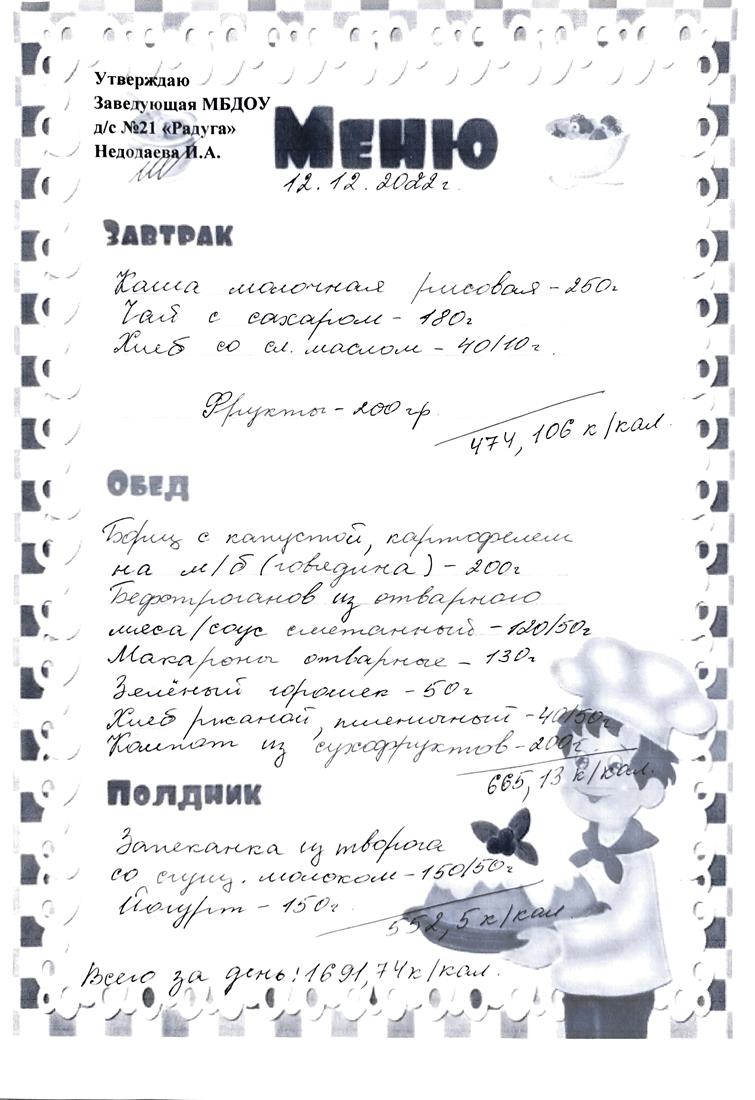 Утверждаю
Заведующая МБДОУ
д/с №21 «Радуга»
Недодаева И.А.
Меню
12.12.2022г.
Завтрак
Каша молочная рисовая - 250г
Чай с сахаром - 180г
Хлеб со сл. маслом - 40/10г.
Фрукты - 200гр.
474,106 к/кал.
Обед
Борщ с капустой, картофелем
на м/б (говядина) - 200г
Бефстроганов из отварного
мяса/соус сметанный - 120/50г
Макароны отварные - 130г
Зелёный горошек - 50г
Хлеб ржаной, пшеничный - 40/50г
Компот из сухофруктов - 200г.
665,13 к/кал.
Полдник
Запеканка из творога
со сгущ. молоком - 150/50г
Йогурт - 150г.
552,5 к/кал
Всего за день: 1691,74 к/кал.